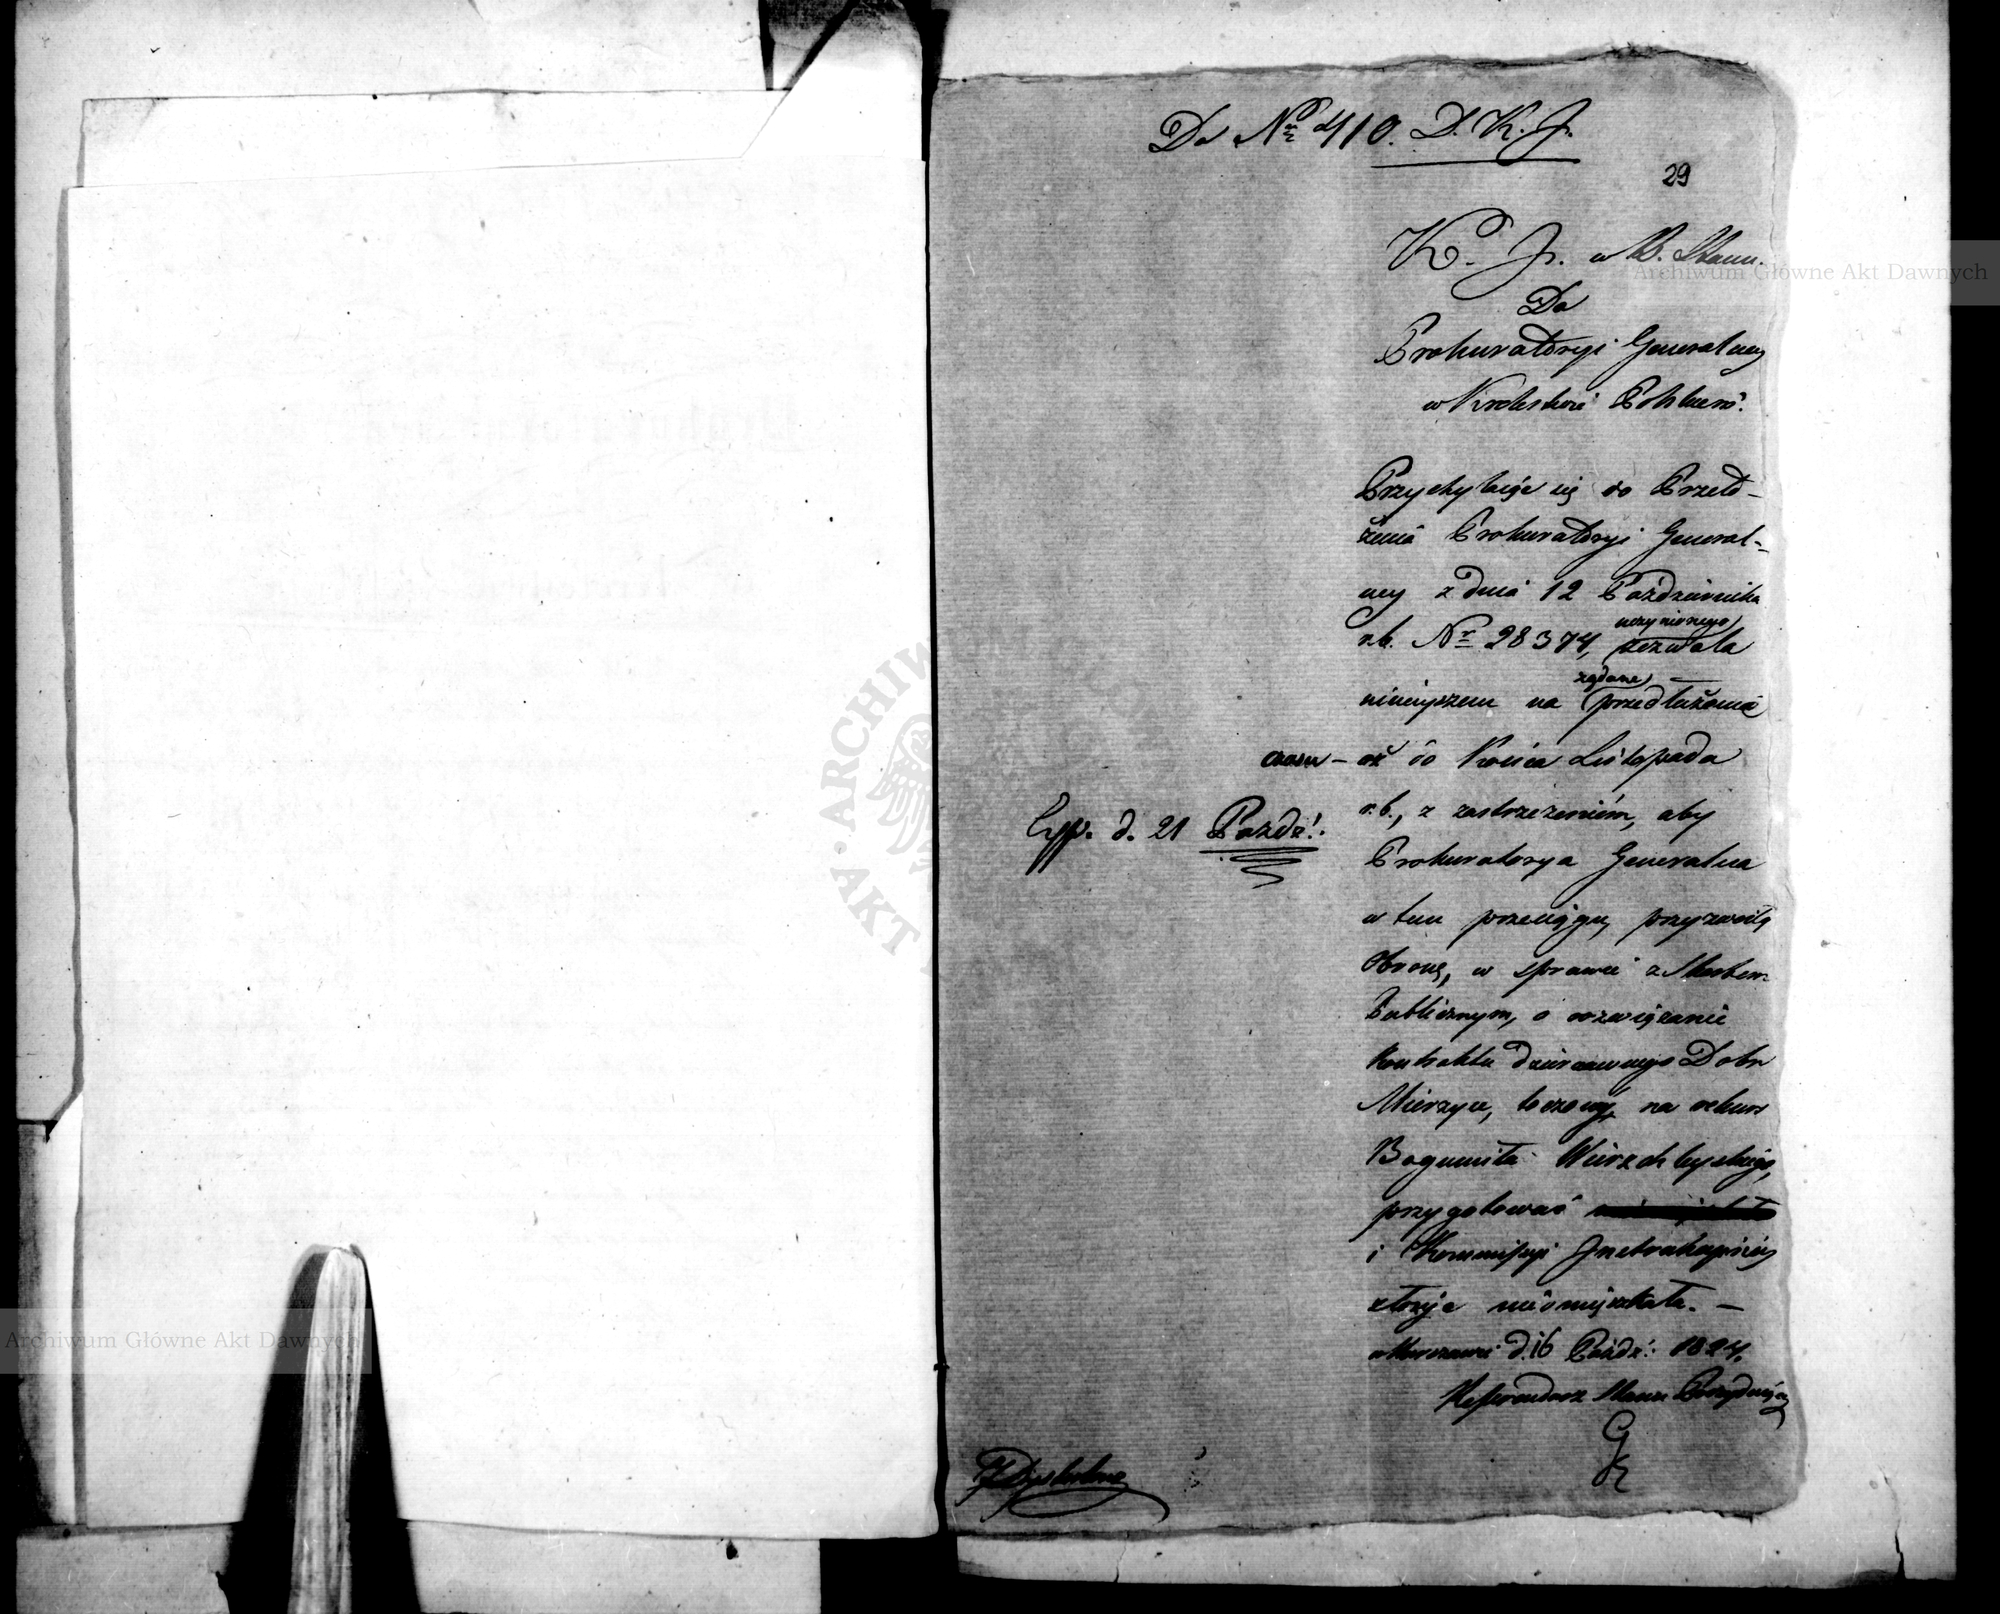 Do Nr 410. D. K. J.
29
K. J. w R. Stanu.
Do
Prokuratoryi Generalney
w Krolestwie Polskiem.
Przychylaiąc się do Przedło-
żenia Prokuratoryi General-
ney z dnia 12 Października
r.b. Nr 28374, uczynionego zezwala
ninieyszem na żądane przedłużenie
czasu – aż do Końca Listopada
r.b., z zastrzeżeniem, aby
Exp. d. 21 Paźdź:
Prokuratorya Generalna
w tym przeciągu, przyzwoitą
Obronę, w sprawie z Skarbem
Publicznym, o rozwiązanie
Kontraktu dzierżawnego Dobr
Mierzyce, toczącey, na rekurs
Bogumiła Wierzchleyskiego,
przygotować
i Kommissyi Instrukcyiney
złożyć nieomieszkała. –
w Warszawie d. 16 Paźdz: 1824.
Referendarz Stanu Prezyduiący
Archiwum Główne Akt Dawnych
Archiwum Główne Akt Dawnych